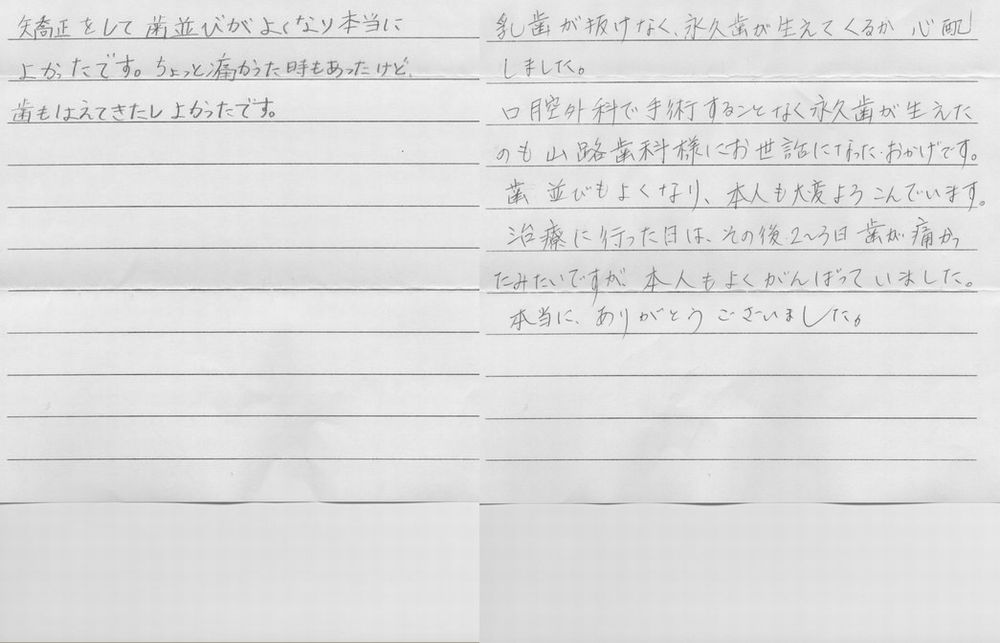 矯正をして歯並びがよくなり本当に
よかったです。ちょっと痛かった時もあったけど、
歯もはえてきたしよかったです。
乳歯が抜けなく、永久歯が生えてくるか心配
しました。
口腔外科で手術することなく永久歯が生えた
のも山路歯科様にお世話になったおかげです。
歯並びもよくなり、本人も大変よろこんでいます。
治療に行った日は、その後2〜3日歯が痛かっ
たみたいですが、本人もよくがんばっていました。
本当に、ありがとうございました。